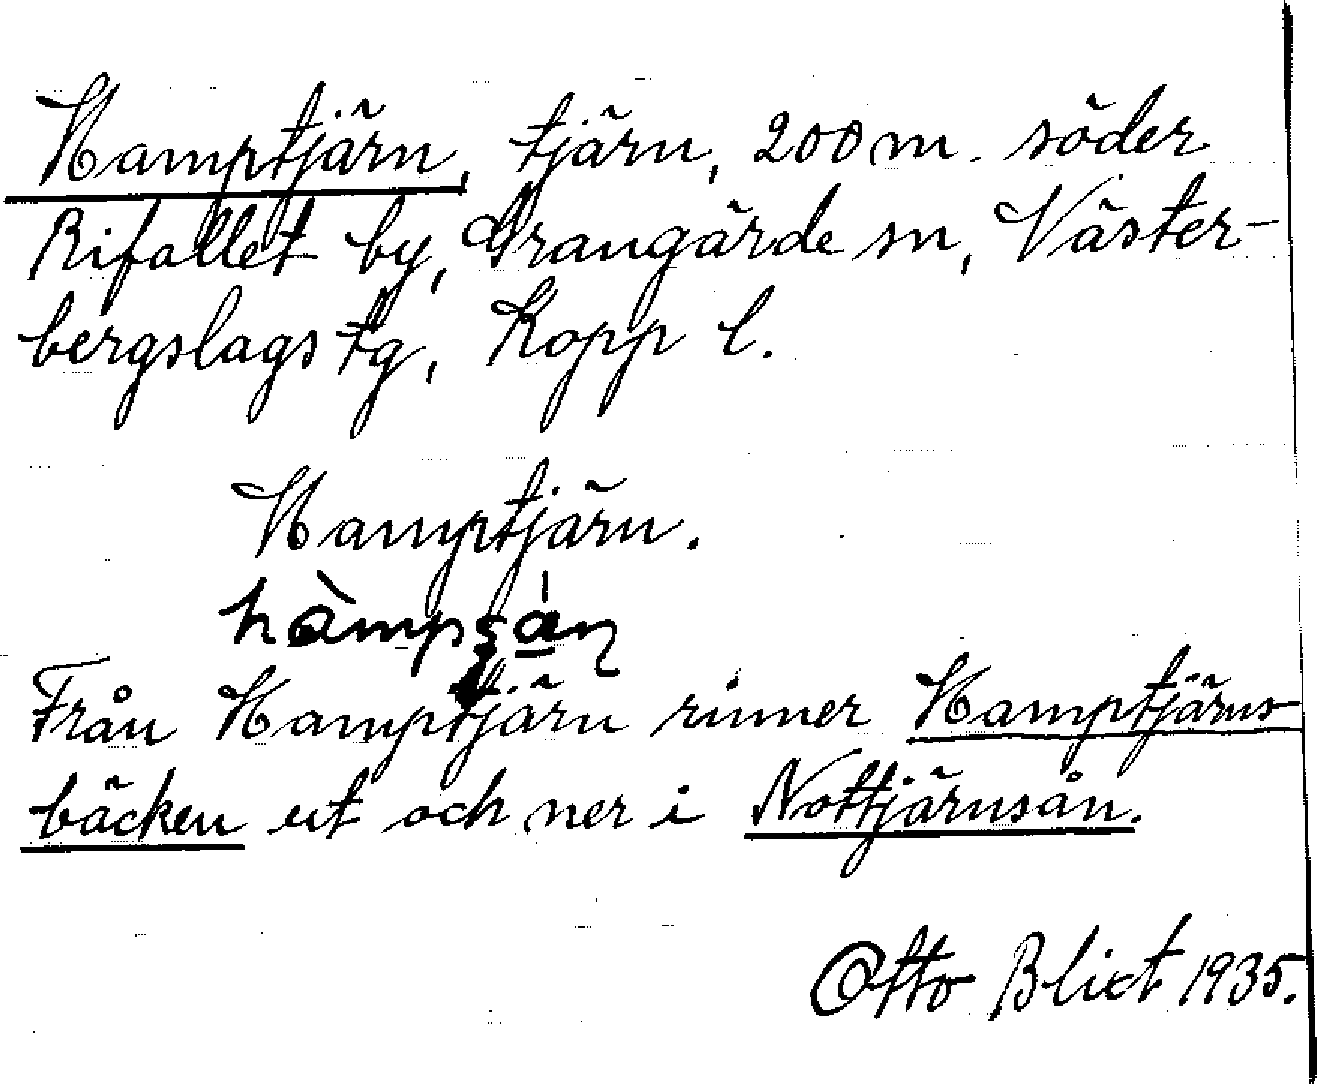 Hamptjärn, tjärn, 200 m. söder
Rifallet by, Grangärde sn, Väster-
bergslags tg, Kopp l.
Hamptjärn.
Från Hamptjärn rinner Hamptjärns-
bäcken ut och ner i Nottjärnsån.
Otto Blixt 1935.